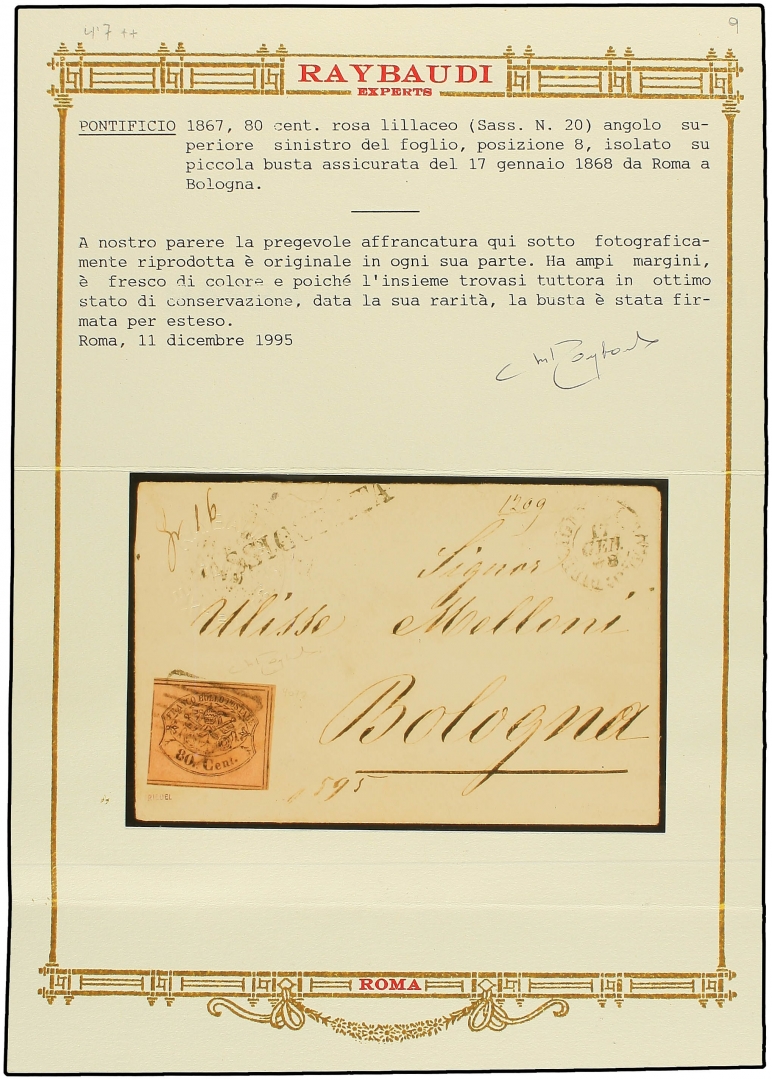 9
RAYBAUDI
EXPERTS
PONTIFICIO 1867, 80 cent. rosa lillaceo (Sass. N. 20) angolo su-
periore sinistro del foglio, posizione 8, isolato su
piccola busta assicurata del 17 gennaio 1868 da Roma a
Bologna.
A nostro parere la pregevole affrancatura qui sotto fotografica-
mente riprodotta è originale in ogni sua parte. Ha ampi margini,
è fresco di colore e poiché l'insieme trovasi tuttora in ottimo
stato di conservazione, data la sua rarità, la busta è stata fir-
mata per esteso.
Roma, 11 dicembre 1995
1209
16
ASSICURATA
17
GEN.
68
Signor
Ulisse Melloni
Bologna
FRANCO BOLLO POSTALE
80. Cent.
595
ROMA